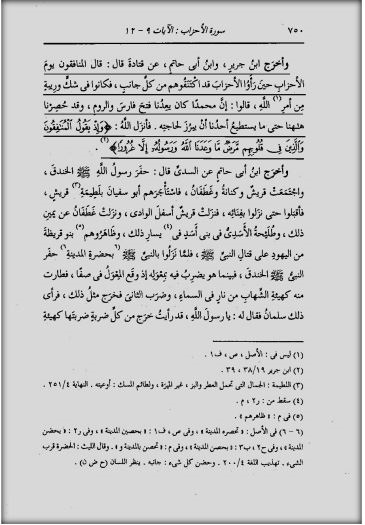 ٧٥٠ سورة الأحزاب : الآيات ٩ - ١٢
وأخرَج ابنُ جريرٍ ، وابنُ أبى حاتمٍ ، عن قتادةَ قال : قال المنافقون يومَ
الأحزابِ حينَ رأَوُا الأحزابَ قد اكْتَنَفُوهم من كلِّ جانبٍ ، فكانوا فى شكٍّ ورِيبةٍ
مِن أمرِ (١) اللَّهِ ، قالوا : إنَّ محمدًا كان يعِدُنا فتحَ فارسَ والرومِ ، وقد حُصِرْنا
ههُنا حتى ما يستطيعُ أحدُنا أن يبرُزَ لحاجتِه . فأنزَل اللَّهُ : ﴿وَإِذْ يَقُولُ الْمُنَافِقُونَ
وَالَّذِينَ فِي قُلُوبِهِم مَّرَضٌ مَّا وَعَدَنَا اللَّهُ وَرَسُولُهُ إِلَّا غُرُورًا﴾ (٢) .
وأخرَج ابنُ أبى حاتمٍ عن السدىِّ قال : حفَر رسولُ اللَّهِ ﷺ الخندقَ ،
واجْتَمَعَت قريشٌ وكنانةُ وغَطَفَانُ ، فاستَأْجَرَهم أبو سفيانَ بلَطِيمَةِ (٣) قريشٍ ،
فأقبَلوا حتى نزَلوا بفِنائِه ، فنزَلَت قريشٌ أسفلَ الوادى ، ونزَلَت غَطَفانُ عن يمينِ
ذلك ، وطُلَيْحةُ الأَسَدِىُّ فى بنى أسَدٍ فى (٤) يسارِ ذلك ، وظاهَرُوهم (٥) بنو قريظةَ
من اليهودِ على قتالِ النبىِّ ﷺ ، فلمَّا نَزَلُوا بالنبىِّ ﷺ (٦ بحضرةِ المدينةِ ٦) حفَر
النبىُّ ﷺ الخندقَ ، فبينما هو يضرِبُ فيه بمِعْوَلِه إذ وقَع المِعْوَلُ فى صفًا ، فطارت
منه كهيئةِ الشِّهابِ من نارٍ فى السماءِ ، وضرَب الثانىَ فخرَج مثلُ ذلك ، فرأى
ذلك سلمانُ فقال له : يا رسولَ اللَّهِ ، قد رأيتُ خرَج من كلِّ ضربةٍ ضربتَها كهيئةِ
(١) ليس فى : الأصل ، ص ، ف١ .
(٢) ابن جرير ١٩/٣٨ ، ٣٩ .
(٣) اللطيمة : الجمال التى تحمل العطر والبز ، غير الميرة ، ولطائم المسك : أوعيته . النهاية ٤/٢٥١ .
(٤) سقط من : ر٢ ، م .
(٥) فى م : « ظاهرهم » .
(٦ - ٦) فى الأصل : « تحصره المدينة » ، وفى ص ، ف١ : « بحصين المدينة » ، وفى ر٢ : « بحضن
المدينة » ، وفى ح٢ ، ب٣ : « بحصن المدينة » ، وفى م : « تحصن بالمدينة و » . وقال الليث : الحضرة قرب
الشىء . تهذيب اللغة ٤/٢٠٠ . وحضن كل شىء : جانبه . ينظر اللسان (ح ض ن) .